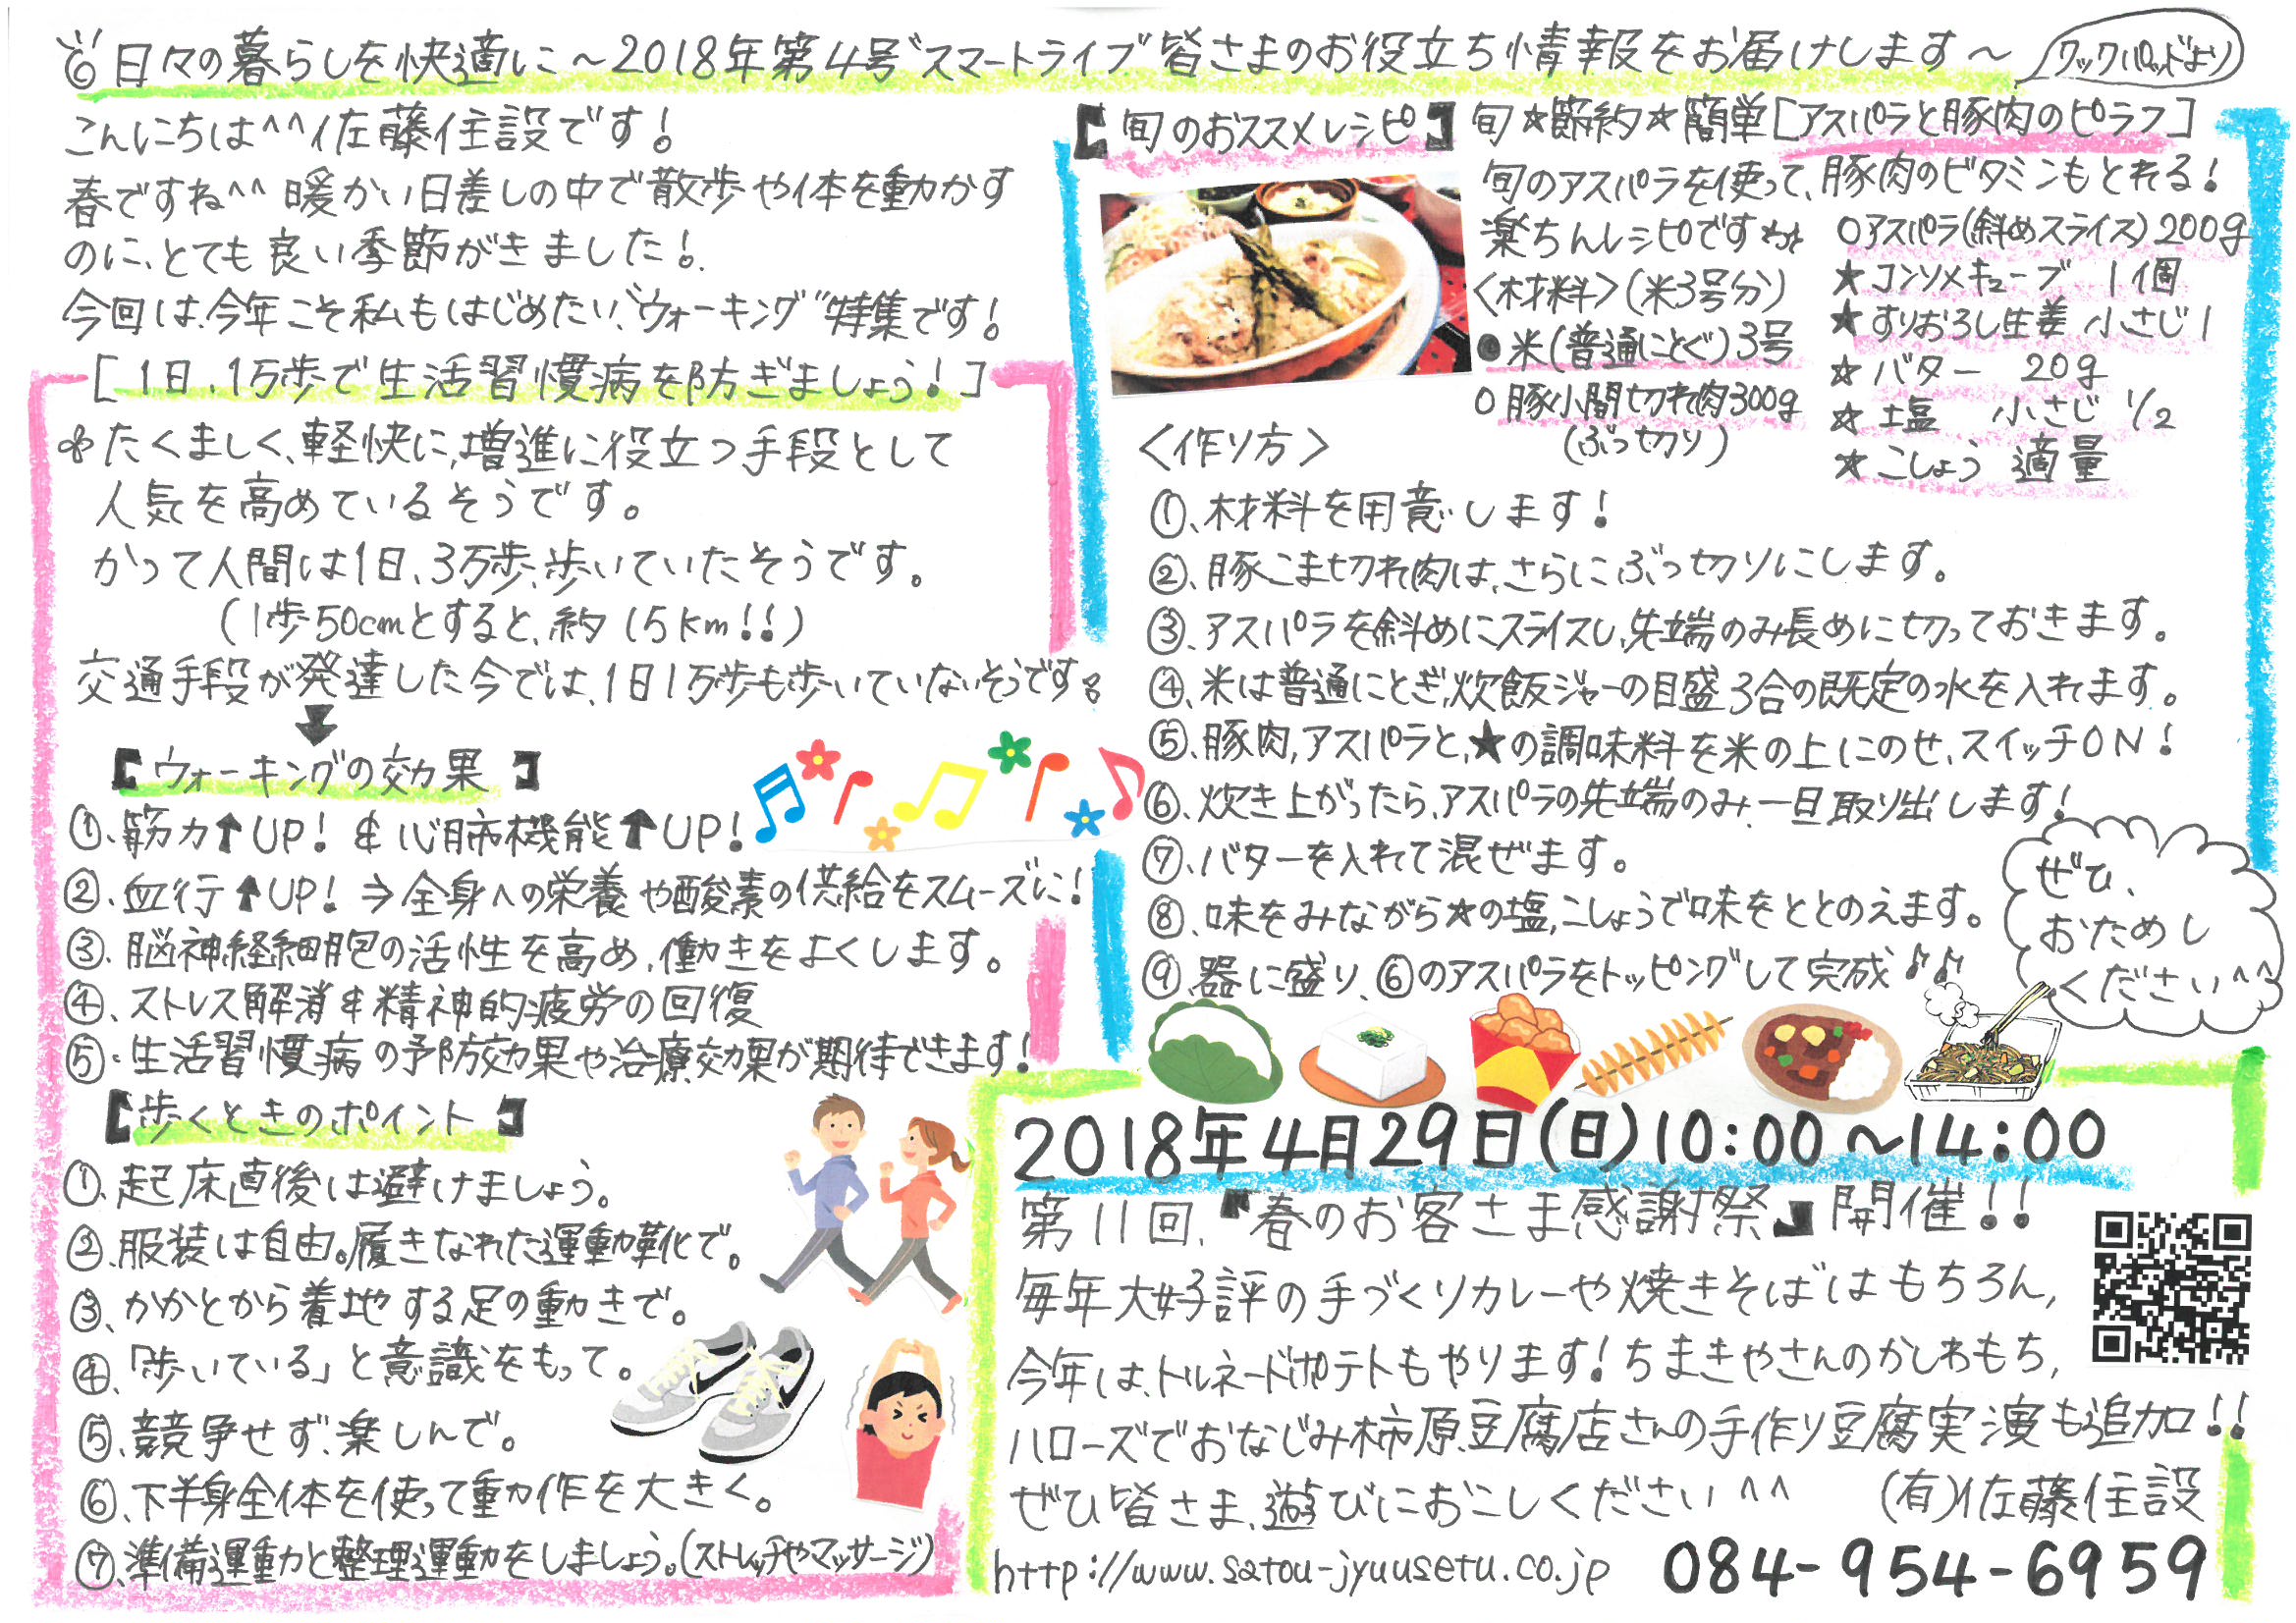 日々の暮らしを快適に～2018年第4号"スマートライブ"皆さまのお役立ち情報をお届けします～
クックパッドより
こんにちは^^佐藤住設です!
春ですね^^暖かい日差しの中で散歩や体を動かす
のに、とても良い季節がきました!
今回は、今年こそ私もはじめたい、"ウォーキング"特集です!
[1日、1万歩で生活習慣病を防ぎましょう!]
たくましく、軽快に、増進に役立つ手段として
人気を高めているそうです。
かつて人間は1日、3万歩、歩いていたそうです。
(1歩50cmとすると、約15km!!)
交通手段が発達した今では、1日1万歩も歩いていないそうです。
↓
【ウォーキングの効果】
①、筋力↑UP! & 心肺機能↑UP!
②、血行↑UP!⇒全身への栄養や酸素の供給をスムーズに!
③、脳神経細胞の活性を高め、働きをよくします。
④、ストレス解消&精神的疲労の回復
⑤、生活習慣病の予防効果や治療効果が期待できます!
【歩くときのポイント】
①、起床直後は避けましょう。
②、服装は自由。履きなれた運動靴で。
③、かかとから着地する足の動きで。
④、「歩いている」と意識をもって。
⑤、競争せず、楽しんで。
⑥、下半身全体を使って動作を大きく。
⑦、準備運動と整理運動をしましょう。(ストレッチやマッサージ)
【旬のおススメレシピ】旬☆節約☆簡単[アスパラと豚肉のピラフ]
旬のアスパラを使って、豚肉のビタミンもとれる!
楽ちんレシピです
<材料>(米3号分)
●米(普通にとぐ)3号
○豚小間切れ肉300g
(ぶつ切り)
○アスパラ(斜めスライス)200g
★コンソメキューブ 1個
★すりおろし生姜 小さじ1
☆バター 20g
★塩 小さじ1/2
★こしょう 適量
<作り方>
①、材料を用意します!
②、豚こま切れ肉は、さらにぶつ切りにします。
③、アスパラを斜めにスライスし、先端のみ長めに切っておきます。
④、米は普通にとぎ、炊飯ジャーの目盛3合の既定の水を入れます。
⑤、豚肉、アスパラと、★の調味料を米の上にのせ、スイッチON!
⑥、炊き上がったら、アスパラの先端のみ、一旦取り出します!
⑦、バターを入れて混ぜます。
⑧、味をみながら★の塩、こしょうで味をととのえます。
⑨、器に盛り、⑥のアスパラをトッピングして完成♪♪
ぜひ、
おためし
ください^^
2018年4月29日(日)10:00～14:00
第11回、『春のお客さま感謝祭』開催!!
毎年大好評の手づくりカレーや焼きそばはもちろん、
今年は、トルネードポテトもやります!ちまきやさんのかしわもち、
ハローズでおなじみ柿原豆腐店さんの手作り豆腐実演も追加!!
ぜひ皆さま、遊びにおこしください^^
(有)佐藤住設
http://www.satou-jyuusetu.co.jp 084-954-6959